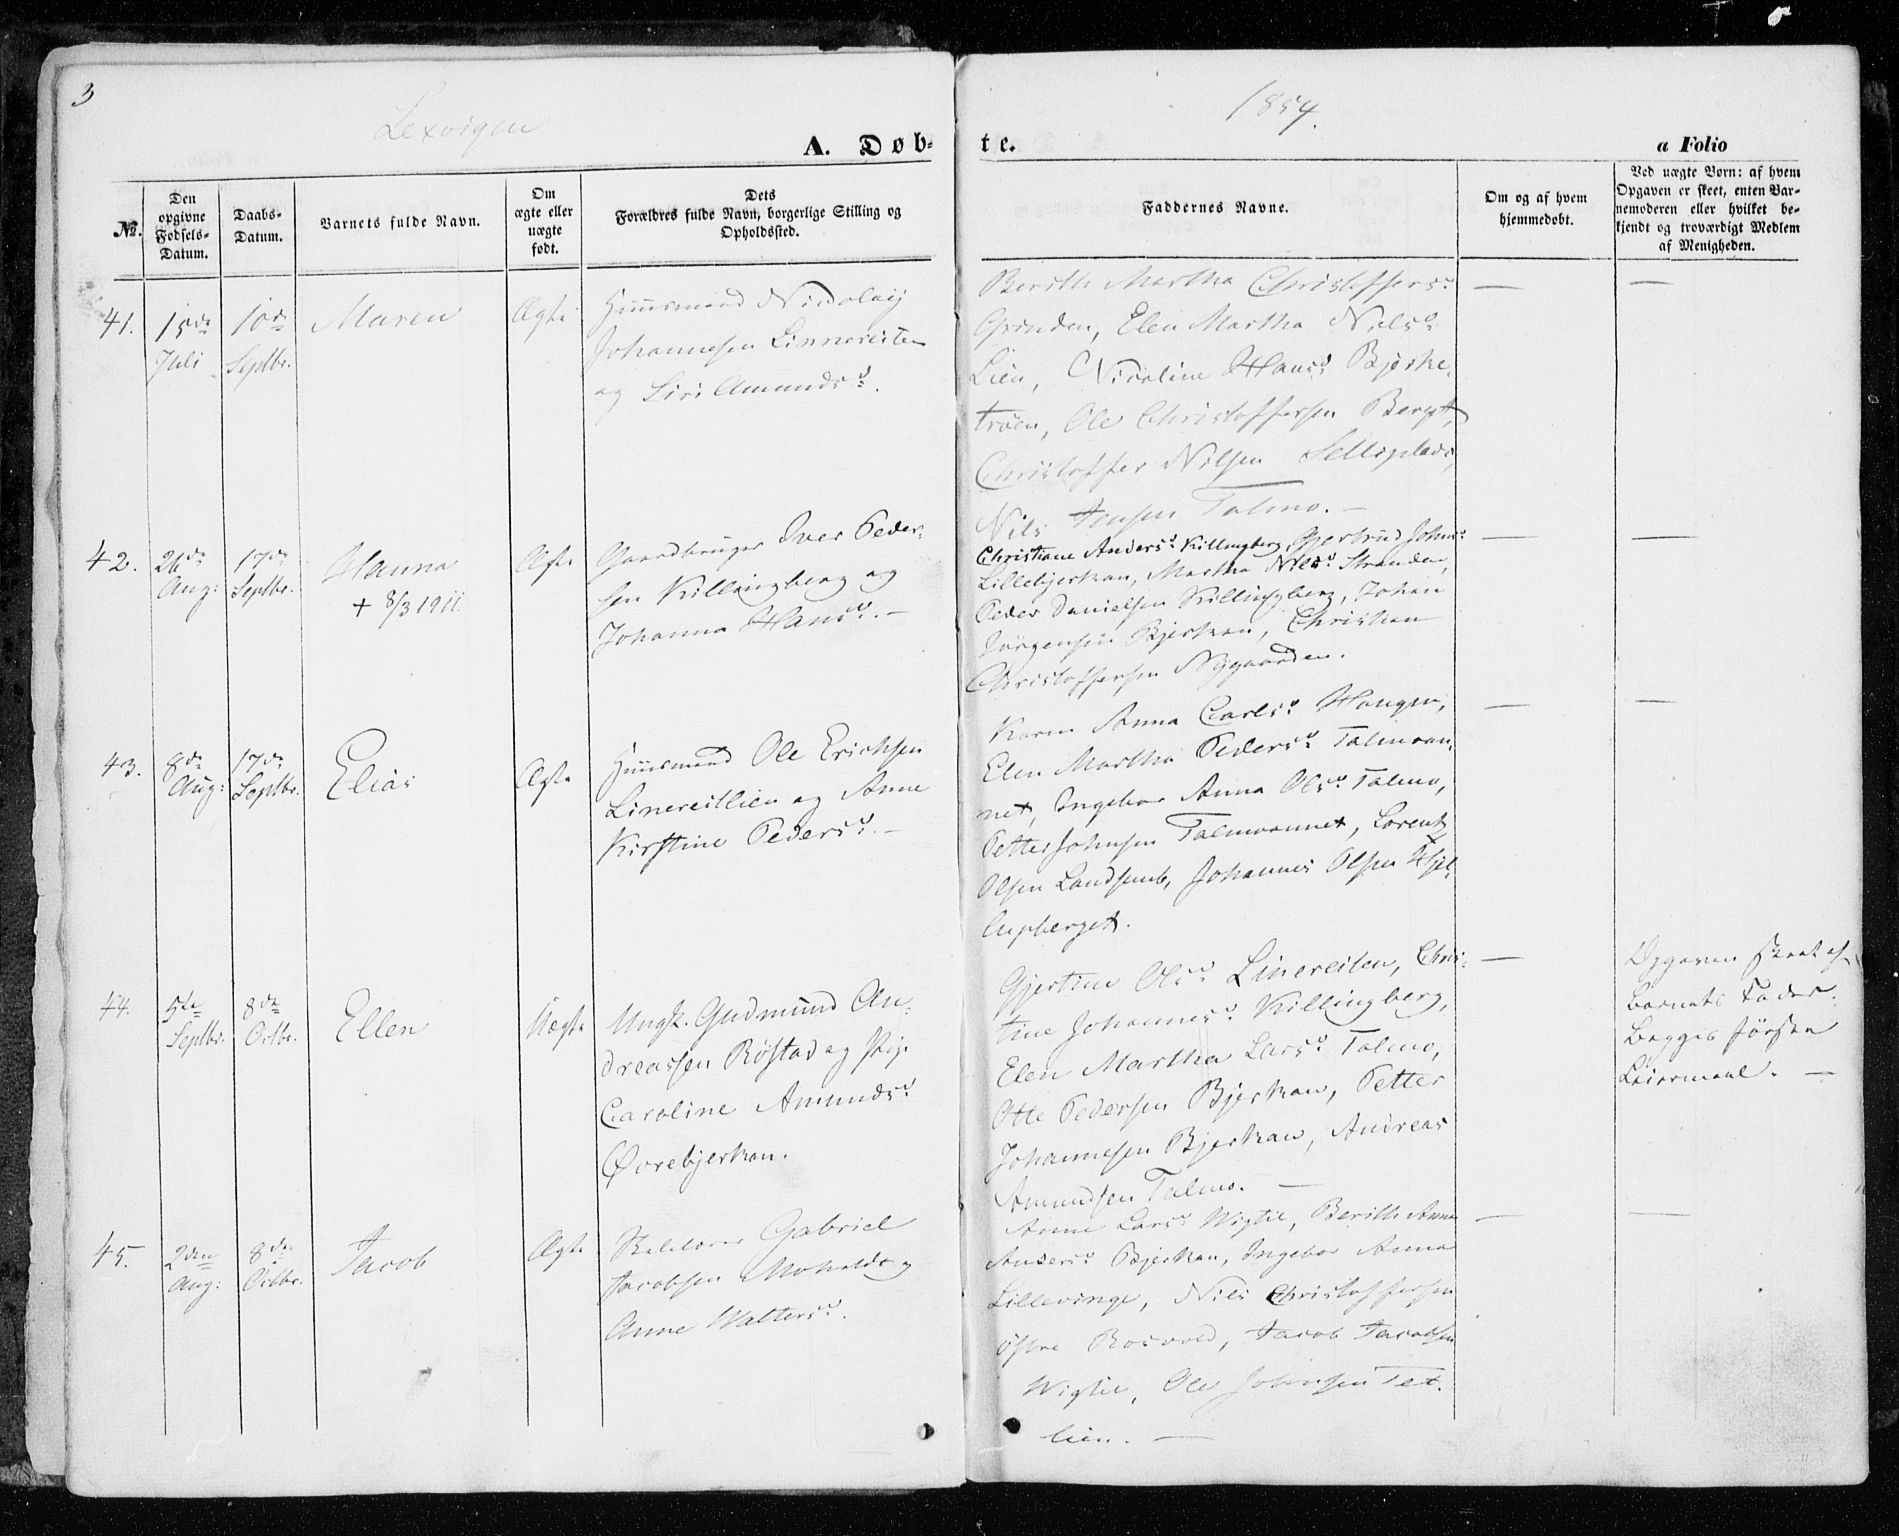 3
Lexvigen
1854.
A. Døb-
te.
a Folio
№.
Den
opgivne
Fødsels-
Datum.
Daabs-
Datum.
Barnets fulde Navn.
Om
ægte eller
uægte
født.
Dets
Forældres fulde Navn, borgerlige Stilling og
Opholdssted.
Faddernes Navne.
Om og af hvem
hjemmedøbt.
Ved uægte Børn: af hvem
Opgaven er skeet, enten Bar-
nemoderen eller hvilket be-
kjendt og troværdigt Medlem
af Menigheden.
41.
15de
Juli
10de
Septbr.
Maren
Ægte
Huusmand Nicolaij
Johannesen Linnereiten
og Siri Amundsd.
Berith Martha Christoffersd.
Grinden, Elen Martha Nielsd.
Lien, Nicoline Hansd. Bjerke-
trøen, Ole Christoffersen Berget,
Christoffer Nilsen Selliplads,
Nils Jensen Talmo. —
42.
26de
Aug:
17de
Septbr.
Hanna
+ 8/3 1911.
Ægte
Gaardbruger Iver Peder-
sen Killingberg og
Johanna Hansd. —
Christiane Andersd. Killingberg, Gjertrud Johnsd.
Lillebjerkan, Martha Nilsd. Stranden,
Peder Danielsen Killingberg, Johan
Jørgensen Bjerkan, Christian
Christoffersen Nygaarden.
43.
8de
Aug:
17de
Septbr.
Elias
Ægte
Huusmand Ole Erichsen
Linereitlien og Anne
Kirstine Pedersd. —
Karen Anna Carlsd. Haugen,
Elen Martha Pedersd. Talmoan-
net, Ingebor Anna Olsd. Talmo,
Petter Johnsen Talmoannet, Lorents
Olsen Landsemb, Johannes Olsen Hjel-
lupberget.
44.
5te
Septbr.
8de
Octbr.
Ellen
Uægte
Ungk. Gudmund An-
dreassen Røstad og Pige
Caroline Amundsd.
Øvrebjerkan.
Gjertine Olsd. Linereiten, Chris-
tine Johannesd. Killingberg,
Elen Martha Larsd. Talmo,
Otte Pedersen Bjerkan, Petter
Johannesen Bjerkan, Andreas
Amundsen Talmo. —
Opgaven skeet af
Barnets Fader.
Begges første
Leiermaal. —
45.
2den
Aug:
8de
Octbr.
Jacob
Ægte
Gabriel
Jacobsen Moholdt og
Anne Waltersd.
Anne Larsd. Wigtil, Berith Anna
Andersd. Bjerkan, Ingebor Anna
Lillevinge, Nils Christoffersen
Østre Rosvold, Jacob Jacobsen
Wigtil, Ole Johnsen Tet-
lien. —